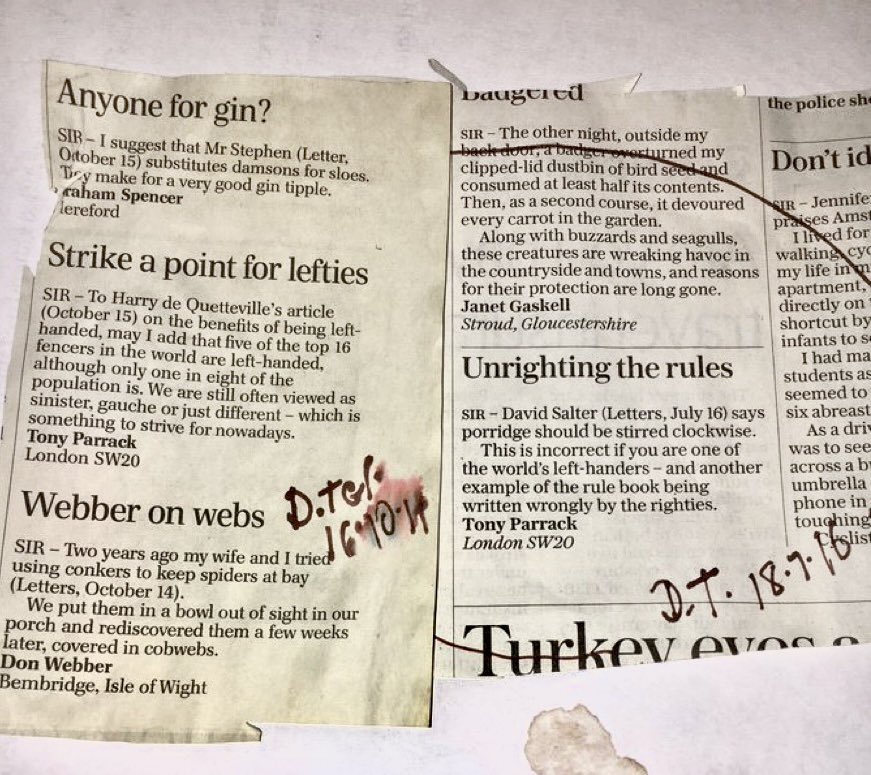 Anyone for gin?
SIR – I suggest that Mr Stephen (Letter,
October 15) substitutes damsons for sloes.
They make for a very good gin tipple.
raham Spencer
lereford
Strike a point for lefties
SIR – To Harry de Quetteville's article
(October 15) on the benefits of being left-
handed, may I add that five of the top 16
fencers in the world are left-handed,
although only one in eight of the
population is. We are still often viewed as
sinister, gauche or just different – which is
something to strive for nowadays.
Tony Parrack
London SW20
D.Tel.
Webber on webs
SIR – Two years ago my wife and I tried
using conkers to keep spiders at bay
(Letters, October 14).
We put them in a bowl out of sight in our
porch and rediscovered them a few weeks
later, covered in cobwebs.
Don Webber
Bembridge, Isle of Wight
Badgered
SIR – The other night, outside my
back door, a badger overturned my
clipped-lid dustbin of bird seed and
consumed at least half its contents.
Then, as a second course, it devoured
every carrot in the garden.
Along with buzzards and seagulls,
these creatures are wreaking havoc in
the countryside and towns, and reasons
for their protection are long gone.
Janet Gaskell
Stroud, Gloucestershire
Unrighting the rules
SIR – David Salter (Letters, July 16) says
porridge should be stirred clockwise.
This is incorrect if you are one of
the world's left-handers – and another
example of the rule book being
written wrongly by the righties.
Tony Parrack
London SW20
D.T. 18.7.16
Turkey eyes a
the police sh
Don't id
SIR – Jennife
praises Amst
I lived for
walking, cyc
my life in m
apartment,
directly on
shortcut by
infants to s
I had ma
students as
seemed to
six abreast
As a driv
was to see
across a b
umbrella
phone in
touching
Cyclist